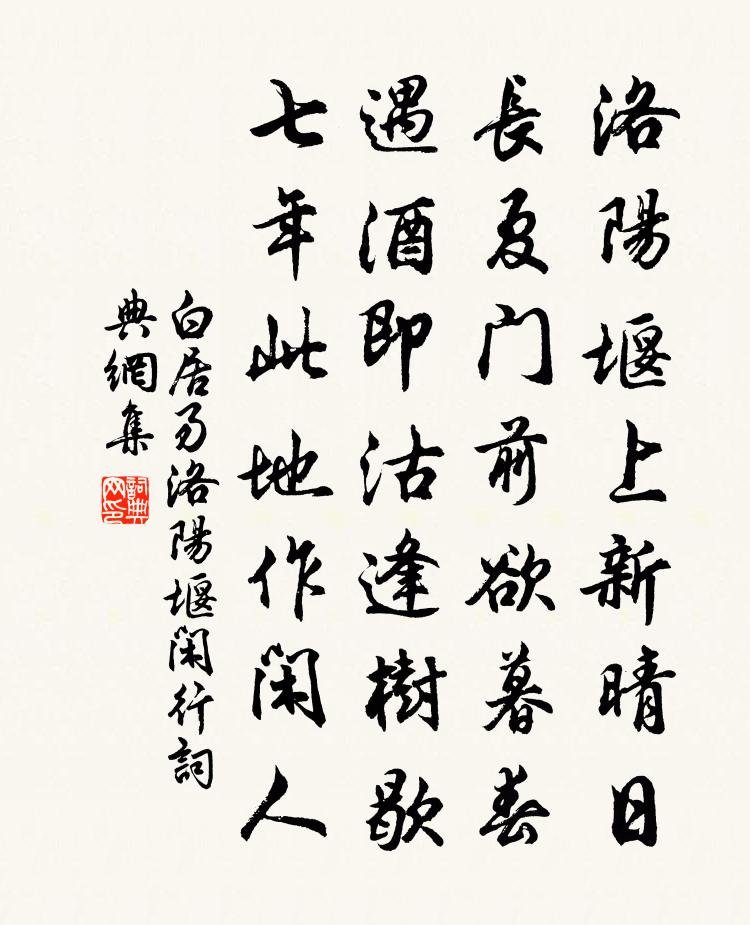 洛陽堰上新晴日
長夏門前欲暮春
遇酒即沽逢樹歇
七年此地作閑人
白居易洛陽堰閑行詞
典網集
詞典网印